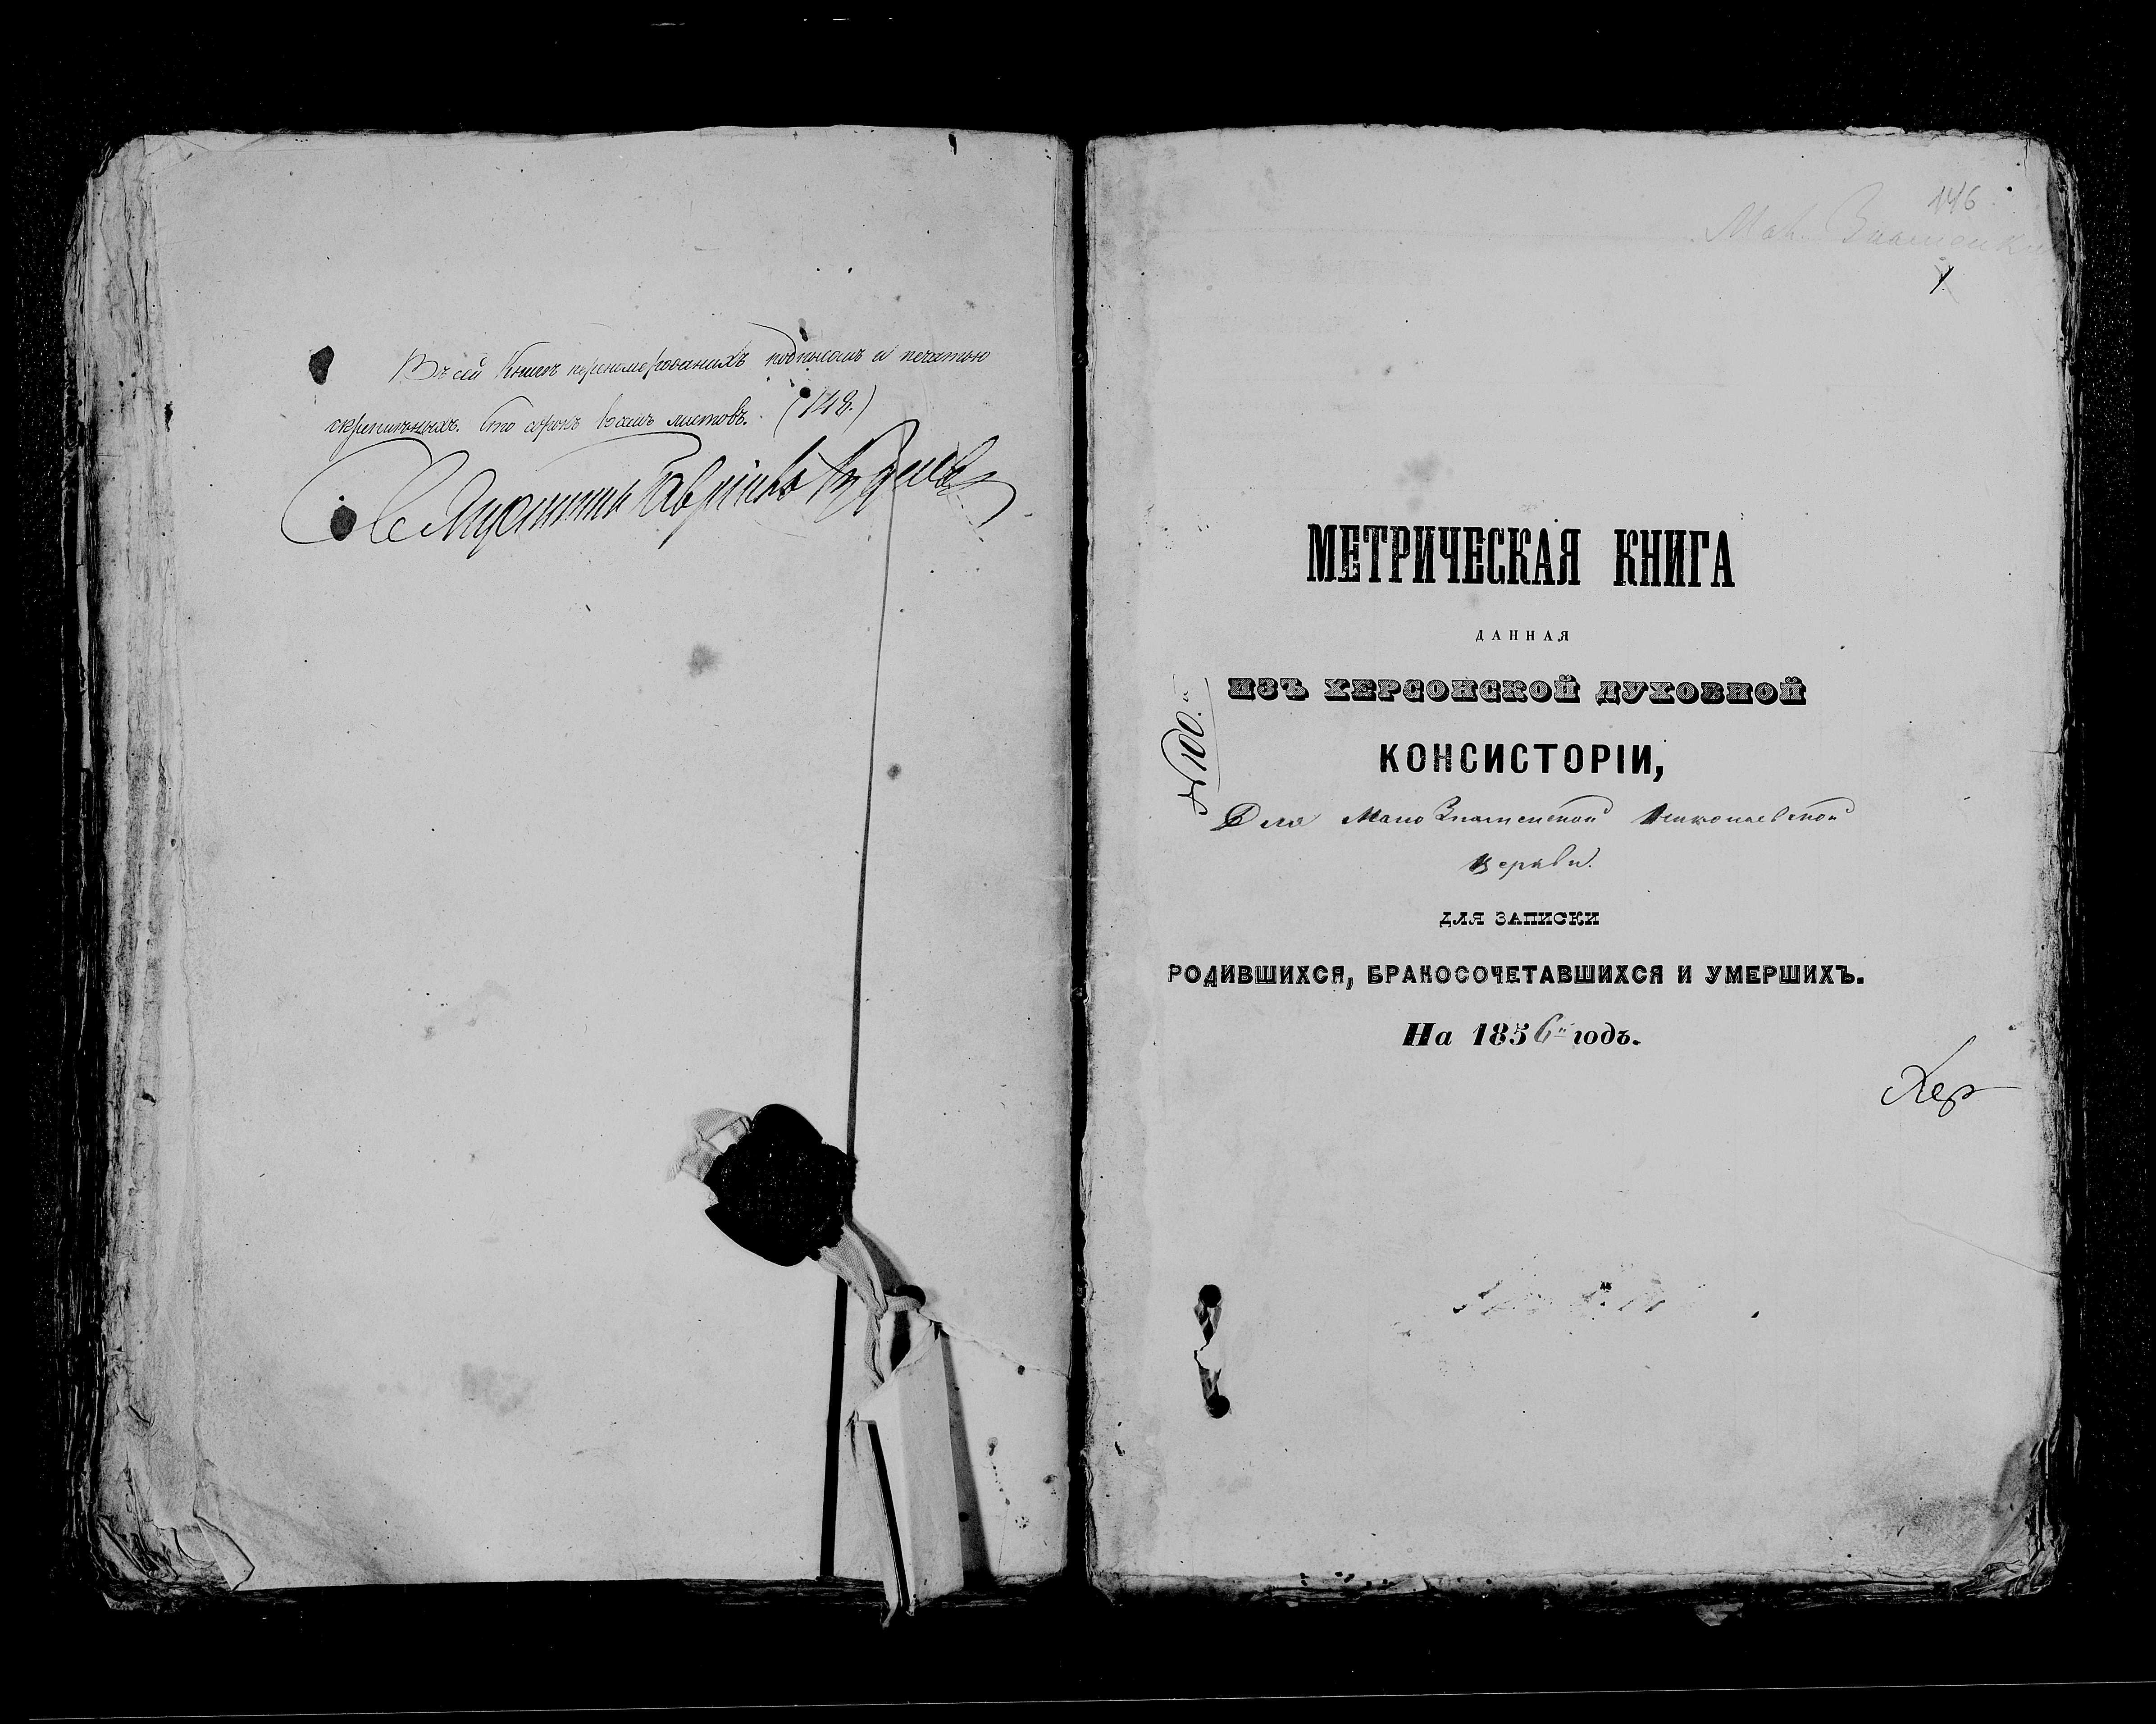 Въ сей Книгѣ перенумерованыхъ подписомъ и печатью
скрепленныхъ. Сто сорокъ восемь листовъ. (148.)
146
Мал. Знаменки
МЕТРИЧЕСКАЯ КНИГА
ДАННАЯ
ИЗЪ ХЕРСОНСКОЙ ДУХОВНОЙ
КОНСИСТОРІИ,
№100.й
Для МалоЗнаменской Николаевской
Церкви.
ДЛЯ ЗАПИСКИ
РОДИВШИХСЯ, БРАКОСОЧЕТАВШИХСЯ И УМЕРШИХЪ.
На 1856й годъ.
Хер